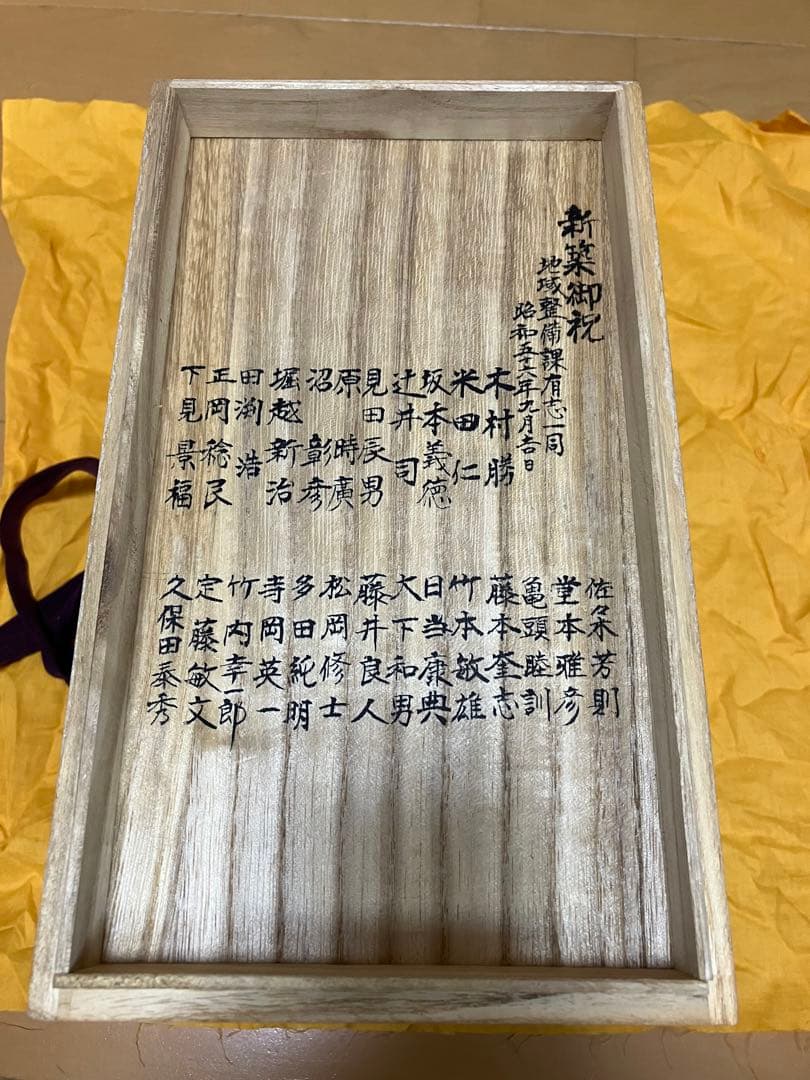 新築御祝
地域整備課有志一同
昭和五十六年九月吉日
木村勝
米田仁
坂本義徳
辻井司
見田辰男
原時廣
沼彰彦
堀越新治
田渕浩
正岡稔民
下見景福
佐々木芳則
堂本雅彦
亀頭睦訓
藤本奎志
竹本敏雄
日当康典
大下和男
藤井良人
松岡修士
多田純明
寺岡英一
竹内幸一郎
定藤敏文
久保田泰秀